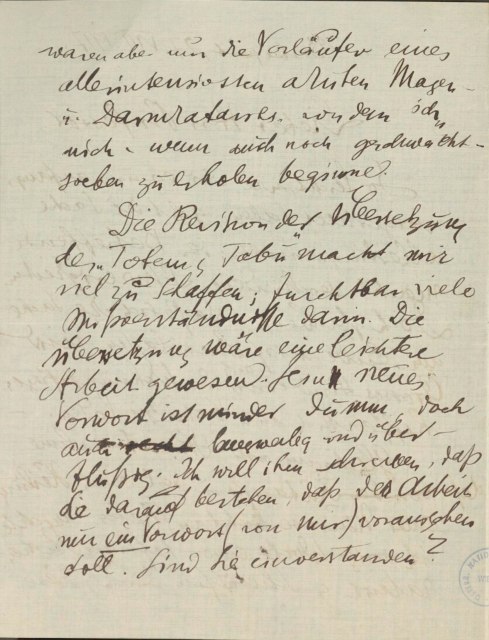 waren aber nur die Vorläufer eines
allerintensivsten akuten Magen-
u. Darmkatarrhs, von dem ich
mich - wenn auch noch geschwächt -
soeben zu erholen beginne.
Die Revision der Übersetzung
des "Totem u. Tabu" macht mir
viel zu schaffen; furchtbar viele
Missverständnisse darin. Die
Übersetzung wäre eine leichtere
Arbeit gewesen. Sein neues
Vorwort ist minder dumm, doch
auch langweilig und über-
flüssig. Ich will ihm schreiben, daß
Sie darauf bestehen, daß der Arbeit
nur ein Vorwort (von mir) vorausgehen
soll. Sind Sie einverstanden?